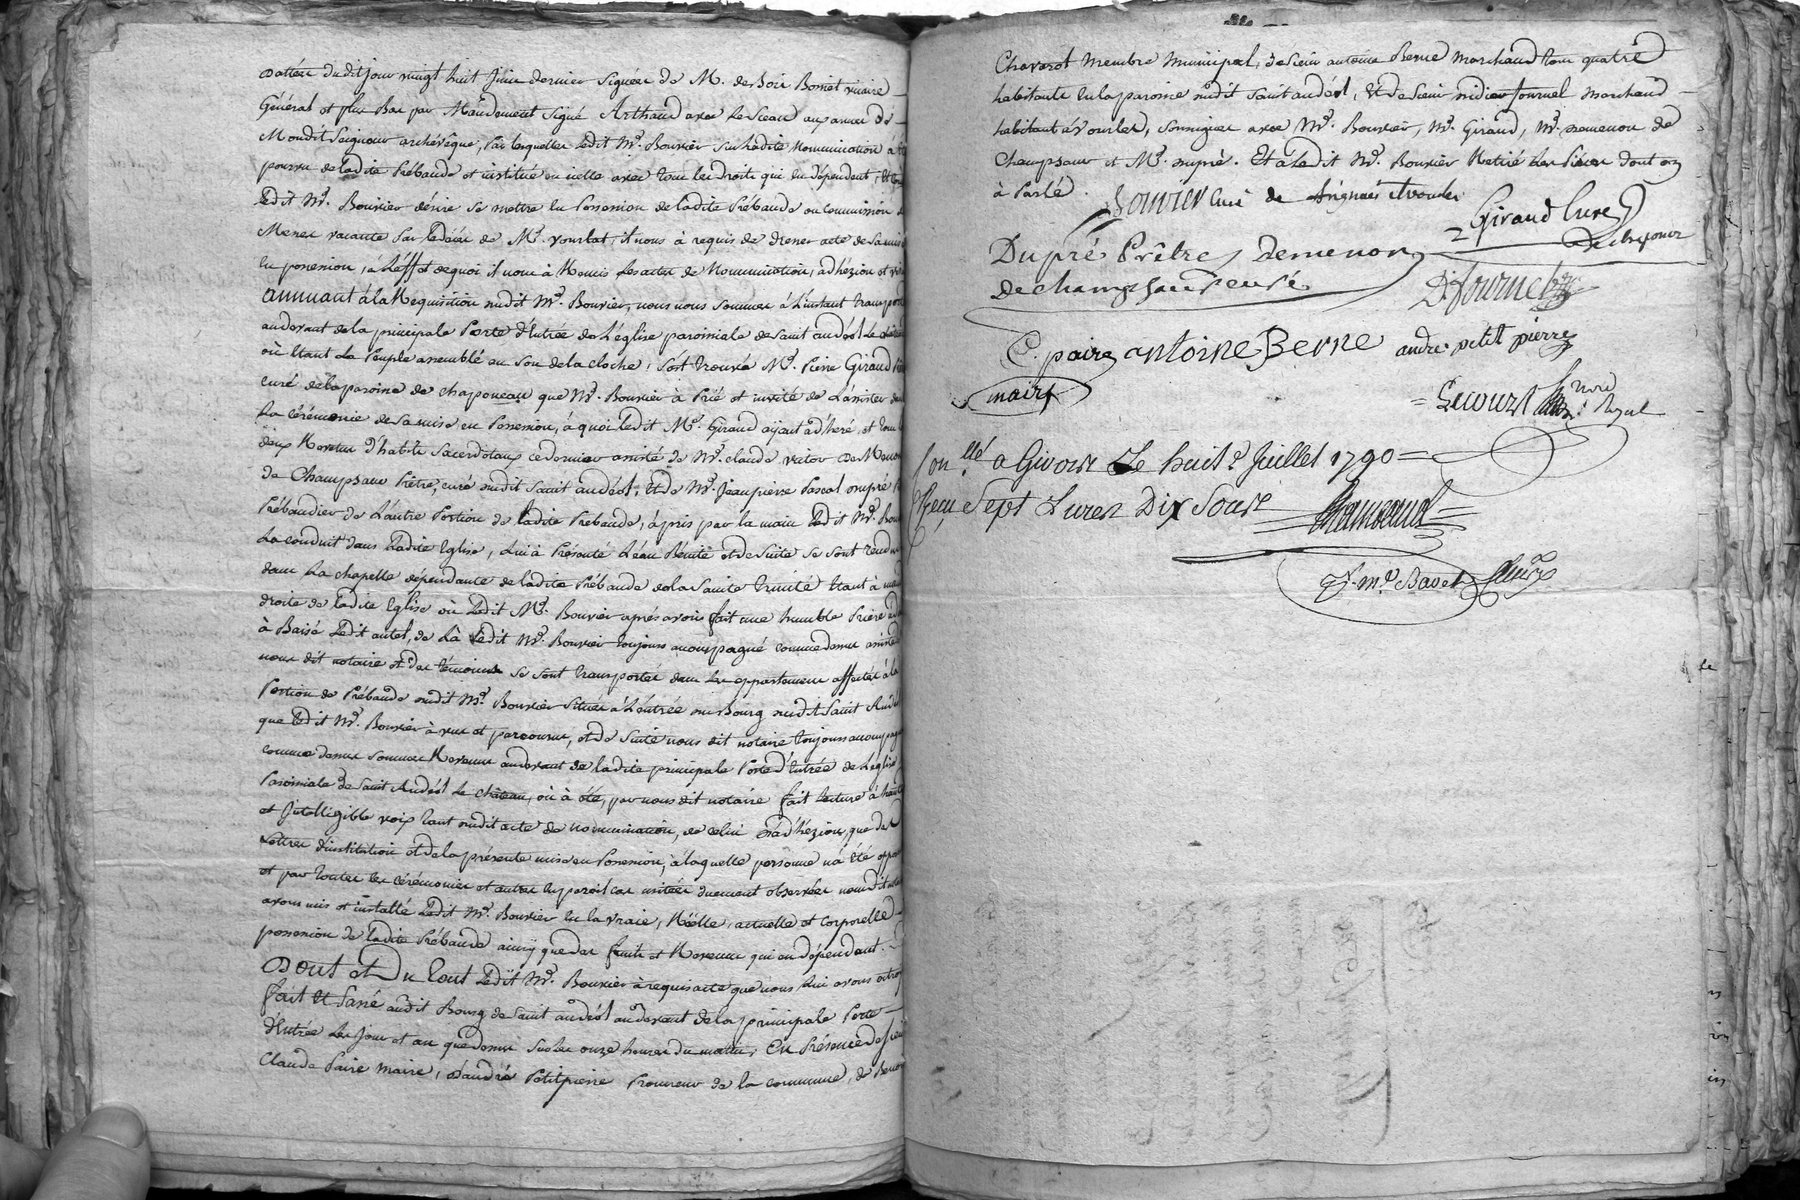 Dattée du dit jour vingt huit Juin dernier signées de M. de Bois Boinet vicaire
Général et plus Bas par Mandement signé Arthaud avec le sceau aux armes de
Mondit Seigneur archevêque, par lesquelles ledit Mr. Bouvier sur ladite Nommination à été
pourvu de ladite Prébande et institué en icelle avec tous les droits qui en dépendent, et
ledit Mr. Bouvier désire se mettre en Possession de ladite Prébande ou commission de
Messes vacante par le décès de Mr. vourlat, il nous à requis de dresser acte de sa mise
en possession, à L'effet de quoi il nous à Remis les actes de Nommination, adhézion et
annuant à la Requisition sudit Mr. Bouvier, nous nous sommes à L'instant transporté
audevant de la principale Porte d'Entrée de L'église paroissiale de saint andéol le château
où Etant Le Peuple assemblé au son de la cloche, s'est trouvé Mr. Pierre Giraud
curé de la paroisse de chaponeau que Mr. Bouvier à Prié et invité de L'assister dans
La cérémonie de sa mise en Possession, à quoi ledit Mr. Giraud ayant adheré, et tous les
deux Revetus d'habits Sacerdotaux ce dernier assisté de Mr. claude victor Demenon
de Champsaur Prêtre, curé sudit saint andéol, et de Mr. Jean pierre Pascal Dupré
Prébandier de L'autre Portion de ladite Prebande, à pris par la main ledit Mr.
La conduit dans ladite Eglise, lui à Présenté L'eau Bénite et de suite se sont rendus
dans La chapelle dépendante de ladite Prébande de la Sainte trinité Etant à main
droite de ladite Eglise où ledit Mr. Bouvier après avoir fait une humble Priere
à Baisé ledit autel, de Là ledit Mr. Bouvier toujours accompagné comme dessus assisté de
nous dit notaire et des témoins se sont transportés dans les appartemens affectés à la
Portion de Prébande sudit Mr. Bouvier située à L'entrée du Bourg sudit Saint Andéol
que ledit Mr. Bouvier à vus et parcourus, et de suite nous dit notaire toujours accompagné
comme dessus sommes Revenus audevant de ladite principale Porte d'Entrée de L'eglise
Paroissiale de Saint Andéol Le château, où à été, par nous dit notaire fait lecture à haute
et Intelligible voix tant sudit acte de nommination, de celui d'adhézion, que des
Lettres d'institution et de la présente mise en Possession, à laquelle personne n'a été opposé
et par toutes les cérémonies et autres en pareil cas usitées duement observées nous dit notaire
avons mis et installé ledit Mr. Bouvier en la vraie, Réelle, actuelle et corporelle
possession de ladite Prébande ainsy que des fruits et Revenus qui en dépendent.
Dont et Du tout ledit Mr. Bouvier à requis acte que nous lui avons octroyé
fait et Passé audit Bourg de Saint andéol audevant de la principale Porte
d'Entrée les Jour et an que dessus sur les onze heures du matin, En Présence de sieur
Claude Paire Maire, d'andré Petitpierre Procureur de la commune, de
Chavarot Membre Municipal, de sieur antoine Berne Marchand tous quatre
habitants en la paroisse sudit saint andéol, et de sieur didier fournel marchand
habitant à vourles, soussignés avec Mr. Bouvier, Mr. Giraud, Mr. demenon de
Champsaur et Mr. dupré. Et à ledit Mr. Bouvier Retiré les Pièces dont on
à Parlé. Bouvier Curé de Brignais et vourles
Giraud Curé
De chaponost
Dupré Prêtre Demenon
De champsaur curé
D. fournel
C. paire antoine Berne andré petit pierre
maire
Lecourt Nore Royal
Con.llé à Givors Le huit Juillet 1790
Reçu Sept Livres Dix Sous